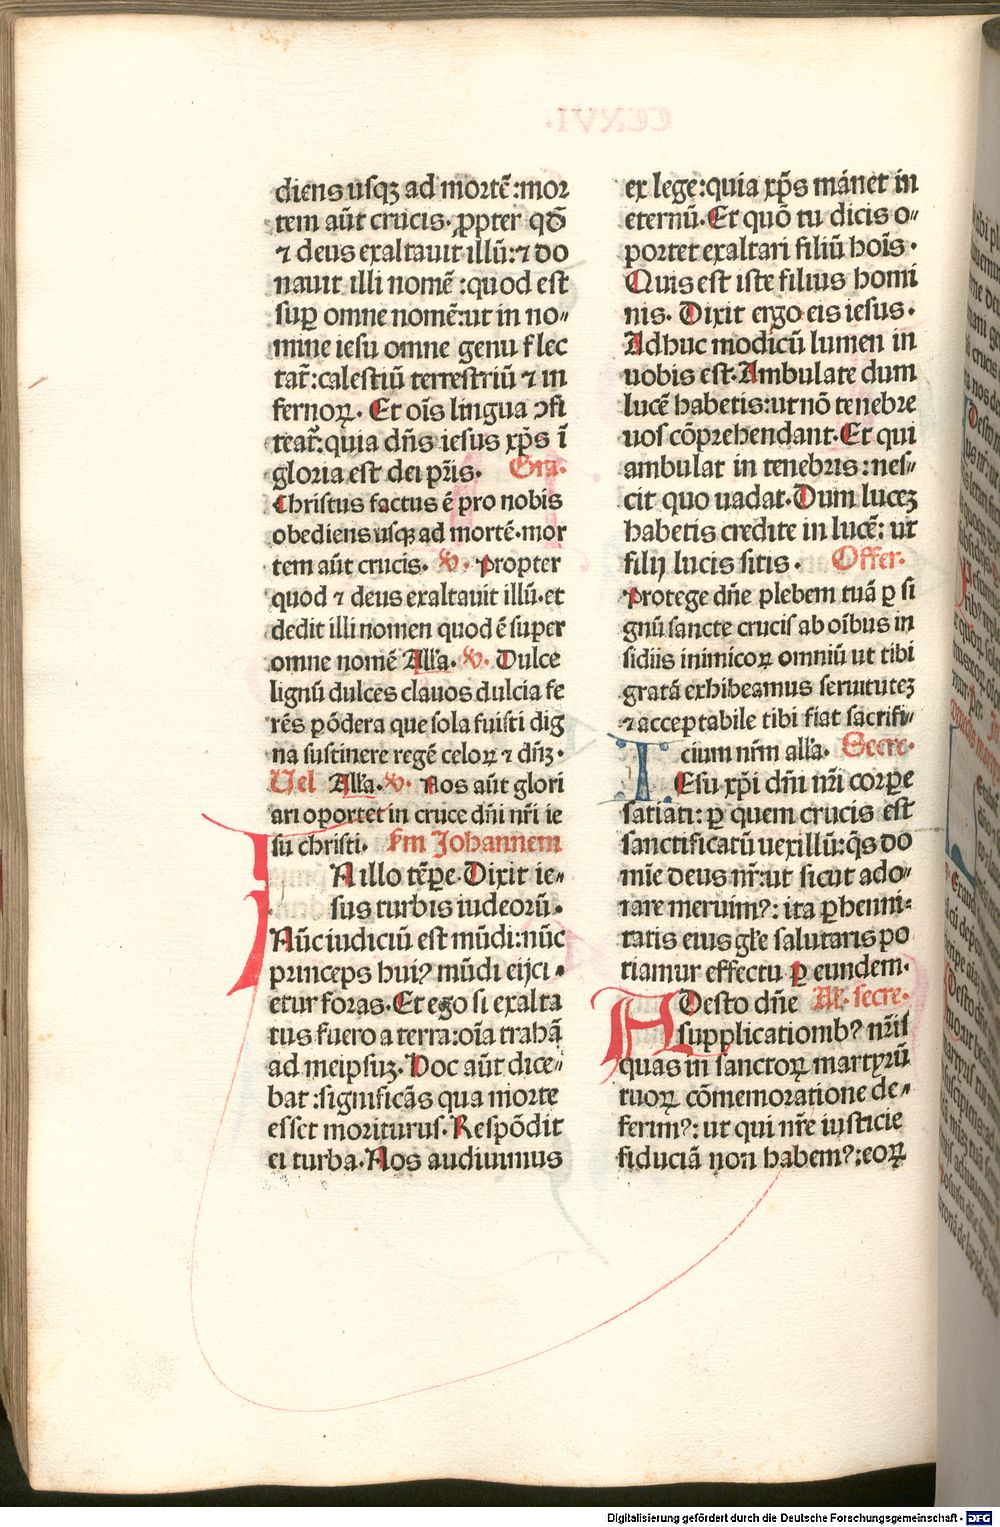 diens usqꝫ ad mortē:mor
tem aūt crucis. ꝓpter qđ
⁊ deus exaltauit illū:⁊ do
nauit illi nomē :quod est
suꝑ omne nomē:ut in no„
mine iesu omne genu flec
tat̄:celestiū terrestriū ⁊ in
fernoꝝ. Et oīs lingua ꝯfi
teat̄:quia dn̄s iesus xp̄s ī
gloria est dei pr̄is. Gra.
Christus factus ē pro nobis
obediens usqꝫ ad mortē.mor
tem aūt crucis. ℣. Propter
quod ⁊ deus exaltauit illū.et
dedit illi nomen quod ē super
omne nomē All'a. ℣. Dulce
lignū dulces clauos dulcia fe
rēs pōdera que sola fuisti dig
na sustinere regē celoꝝ ⁊ dn̄ꝫ.
Uel All'a.℣. Nos aūt glori
ari oportet in cruce dn̄i nr̄i ie
su christi. S'm Johannem
IN illo tēꝑe.Dixit ie„
sus turbis iudeorū.
Nūc iudiciū est mūdi:nūc
princeps huiꝰ mūdi eijci„
etur foras.Et ego si exalta
tus fuero a terra:oīa trahā
ad meipsuꝫ.Hoc aūt dice„
bat :significās qua morte
esset moriturus.Respōdit
ei turba.Nos audiuimus
ex lege:quia xp̄s manet in
eternū.Et quō tu dicis o„
portet exaltari filiū hoīs.
Quis est iste filius homi
nis. Dixit ergo eis iesus.
Adhuc modicū lumen in
uobis est.Ambulate dum
lucē habetis:ut nō tenebre
uos cōprehendant.Et qui
ambulat in tenebris:nes„
cit quo uadat.Dum luceꝫ
habetis credite in lucē: ut
filij lucis sitis. Offer.
Protege dn̄e plebem tuā ꝑ si
gnū sancte crucis ab oībus in
sidiis inimicoꝝ omniū ut tibi
gratā exhibeamus seruituteꝫ
⁊ acceptabile tibi fiat sacrifi„
cium nr̄m all'a. Secre.
IEsu xp̄i dn̄i nr̄i corꝑe
satiati: ꝑ quem crucis est
sanctificatū uexillū:q̄s do
mīe deus nr̄:ut sicut ado„
rare meruimꝰ: ita ꝑhenni„
tatis eius gl'e salutaris po
tiamur effectu ꝑ eundem.
ADesto dn̄e Al. secre.
supplicationibꝰ nr̄is
quas in sanctoꝝ martyrū
tuoꝝ cōmemoratione de„
ferimꝰ: ut qui nr̄e iusticie
fiduciā non habemꝰ:eoꝝ
Digitalisierung gefördert durch die Deutsche Forschungsgemeinschaft - DFG